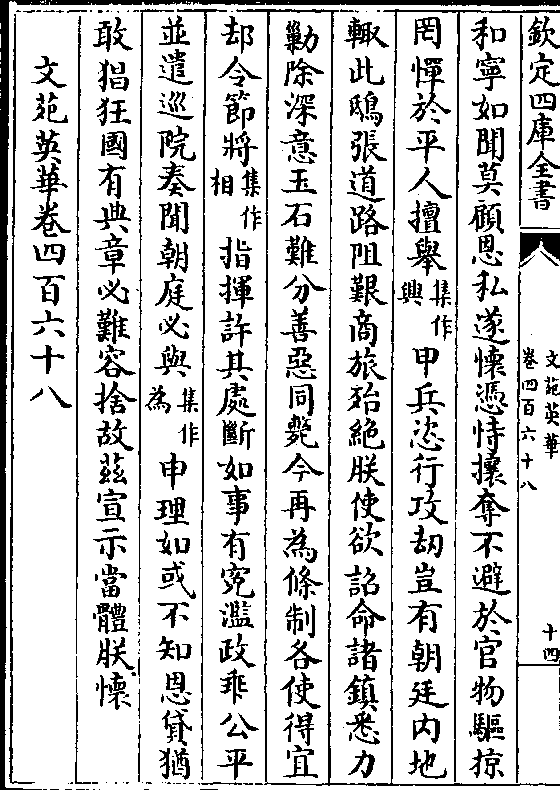 欽定四庫全書
文苑英華
卷四百六十八
十四
和寧如聞莫顧恩私遂懷憑恃攘奪不避於官物驅掠
罔憚於平人擅舉集作興甲兵恣行攻刼豈有朝廷内地
輙此鴟張道路阻艱商旅殆絶朕使欲詔命諸鎮悉力
勦除深意玉石難分善惡同斃今再為條制各使得宜
却令節將集作相指揮許其處斷如事有寃濫政乖公平
並遣巡院奏聞朝庭必與集作為申理如或不知恩貸猶
敢猖狂國有典章必難容捨故兹宣示當體朕懷
文苑英華卷四百六十八